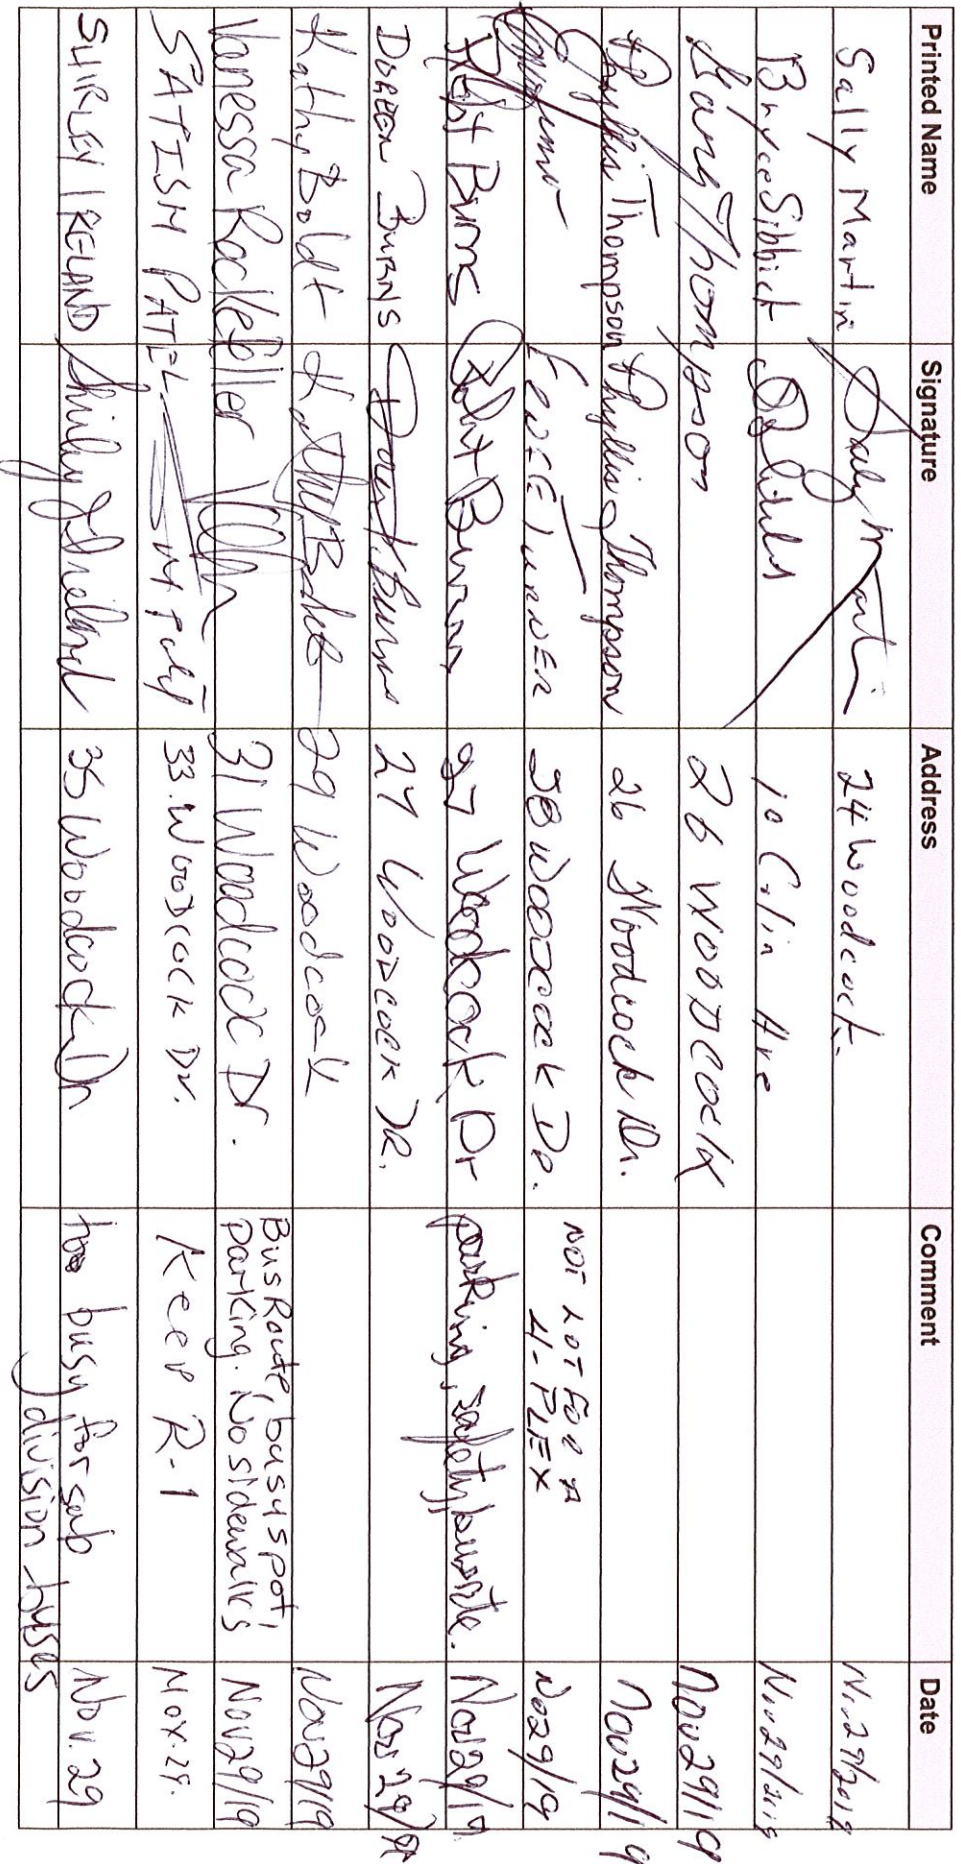 Printed Name Signature Address Comment Date
Sally Martin Sally Martin 24 Woodcock Nov 29/2019
Bryce Sibbick 10 Colin Ave Nov 29/2019
Thompson 26 WOODCOCK Nov 29/19
Phyllis Thompson Phyllis Thompson 26 Woodcock Dr. Nov 29/19
TURNER 28 WOODCOCK DR. NOT LOT FOR A
4-PLEX No29/19
Burns Burns 27 Woodcock Dr parking, safety, busrte. Nov29/19
DOREEN BURNS Burns 27 WOODCOCK DR. Nov 29/19
Kathy Boldt Kathy Boldt 29 Woodcock Nov 29/19
Vanessa Rockefiller 31 Woodcock Dr. Bus Route, busy spot!
parking. No sidewalks Nov 29/19
SATISH PATEL 33. WOODCOCK Dr. Keep R-1 Nov. 29.
SHIRLEY IRELAND Shirley Ireland 35 Woodcock Dr too busy for sub
division buses Nov. 29